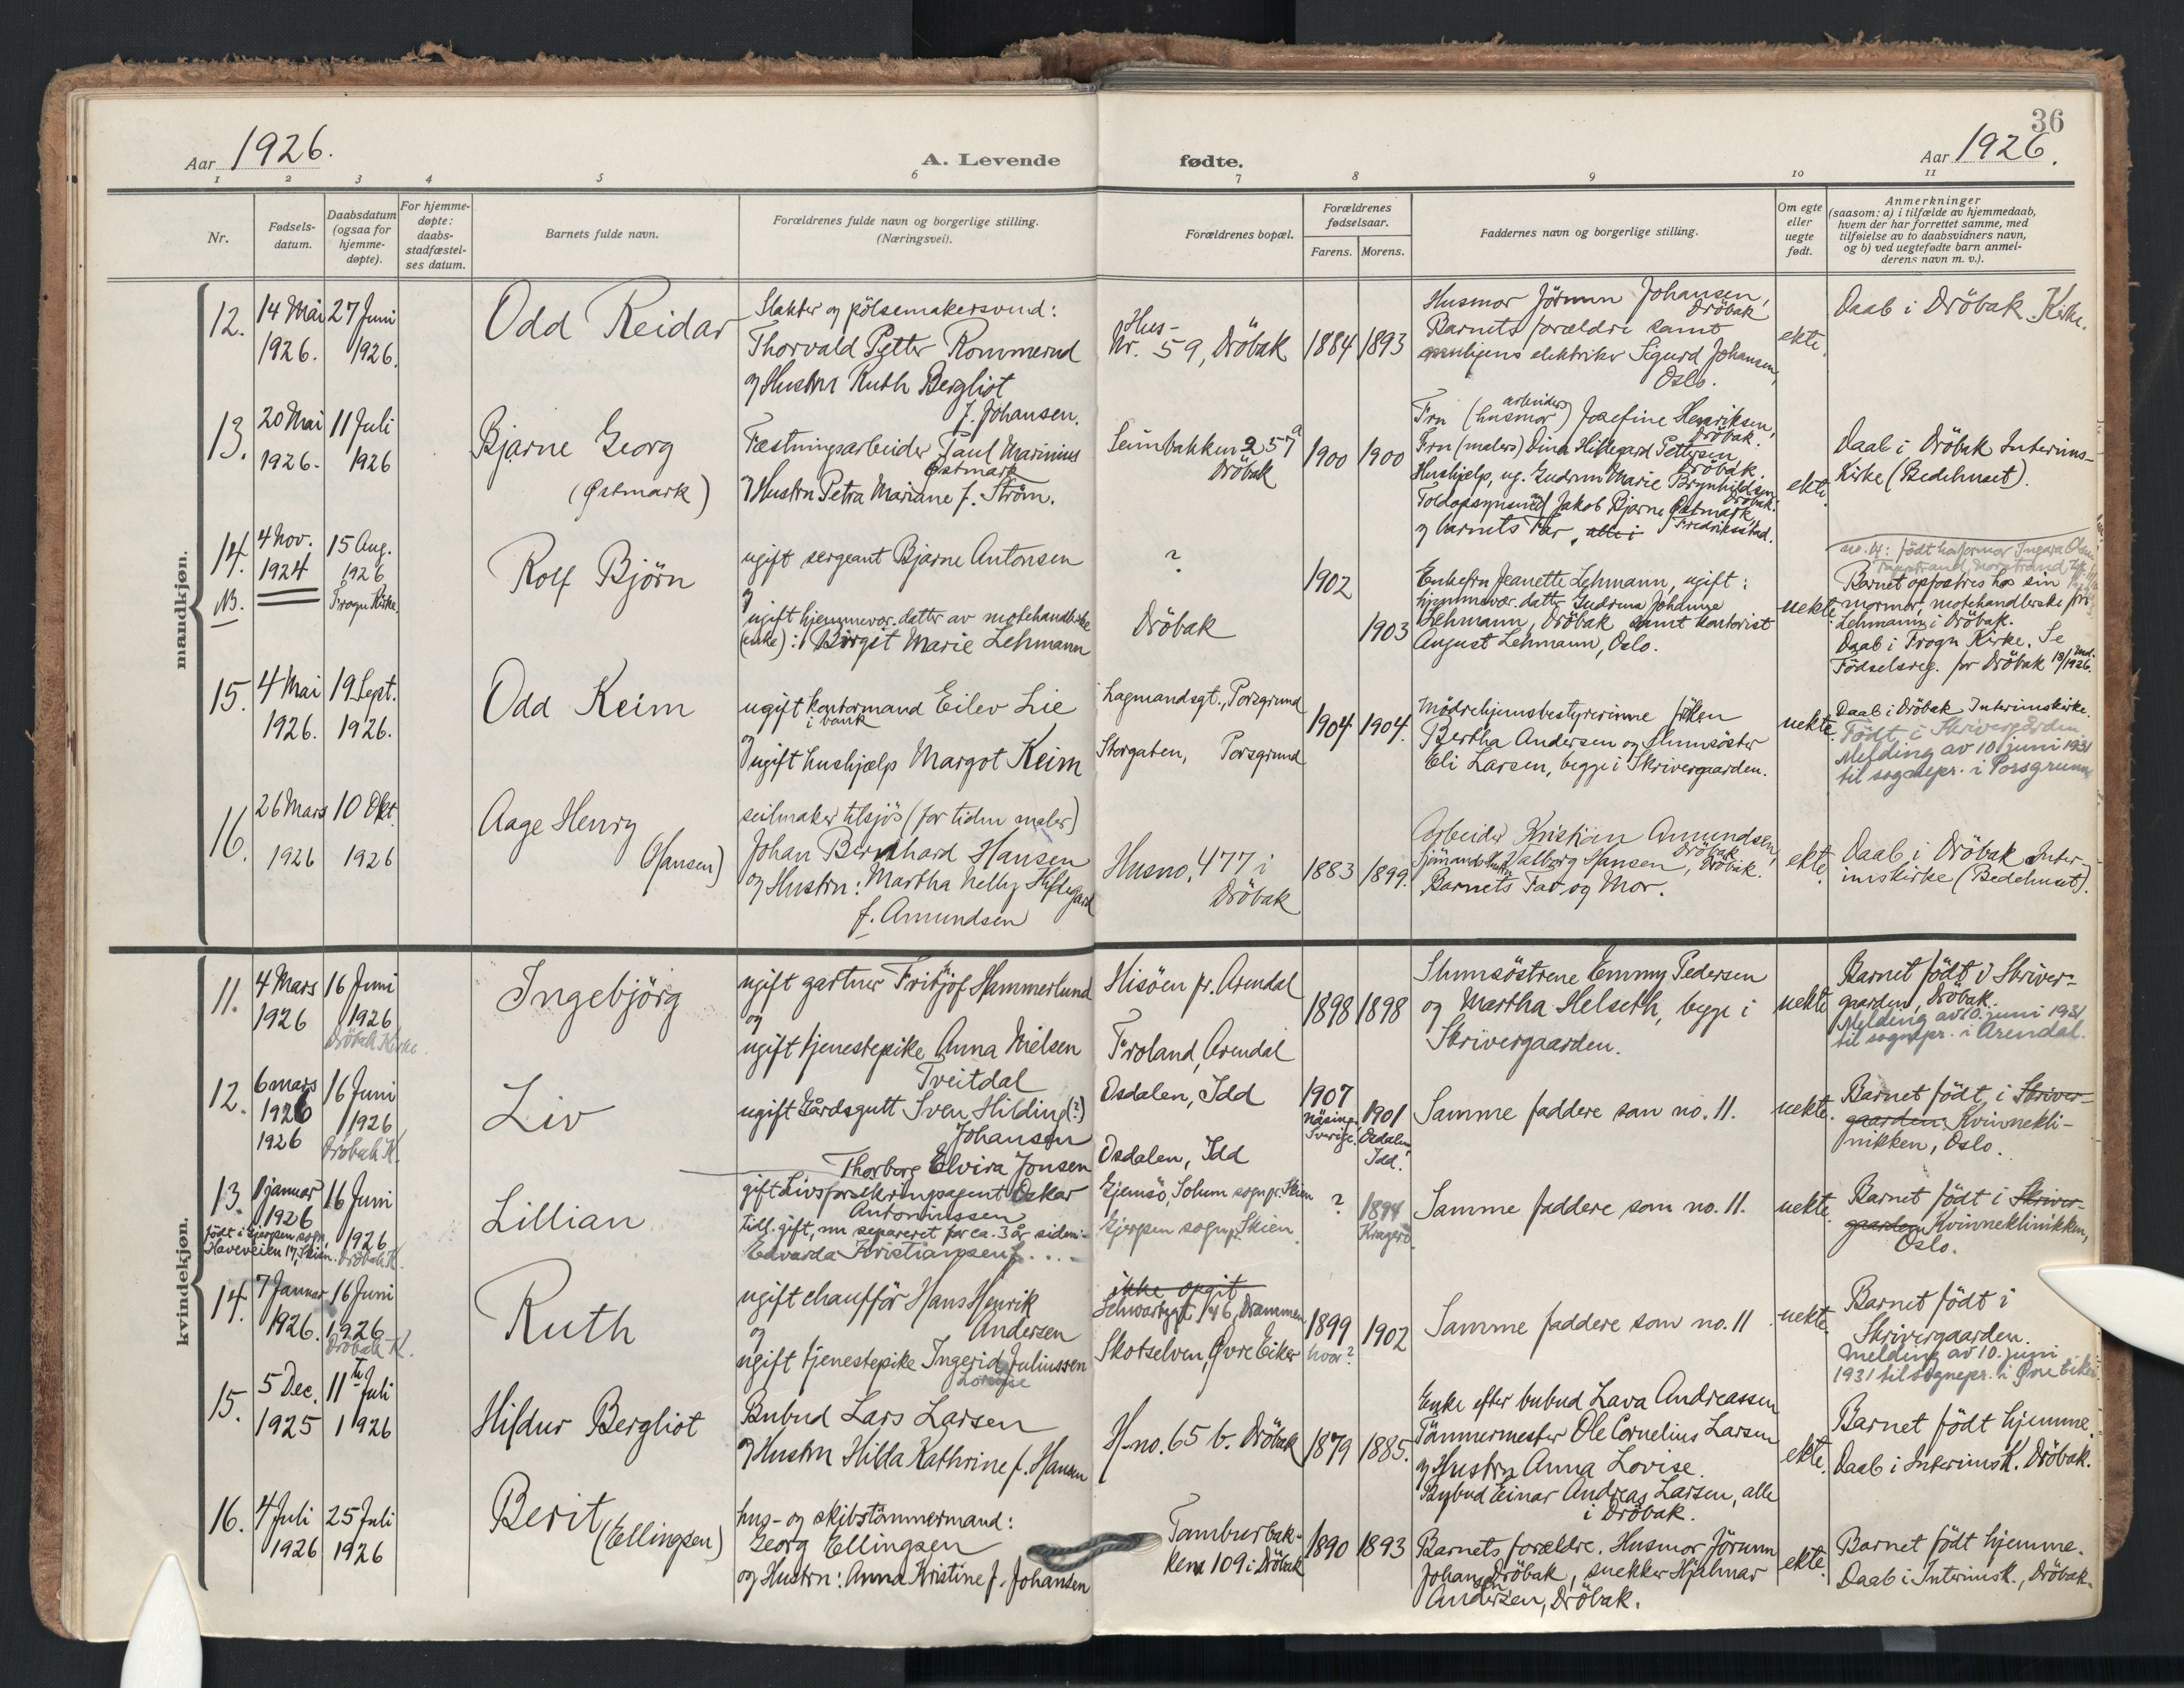 36
Aar 1926.
A. Levende fødte.
Aar 1926.
1 2 3 4 5 6 7 8 9 10 11
Nr.
Fødsels-
datum.
Daabsdatum
(ogsaa for
hjemme-
døpte).
For hjemme-
døpte:
daabs-
stadfæstel-
ses datum.
Barnets fulde navn.
Forældrenes fulde navn og borgerlige stilling.
(Næringsvei).
Forældrenes bopæl.
Forældrenes
fødselsaar.
Farens. Morens.
Faddernes navn og borgerlige stilling.
Om egte
eller
uegte
født.
Anmerkninger
(saasom: a) i tilfælde av hjemmedaab,
hvem der har forrettet samme, med
tilføielse av to daabsvidners navn,
og b) ved uegtefødte barn anmel-
derens navn m. v.).
mandkjøn.
12.
14 Mai
1926.
27 Juni
1926.
Odd Reidar
Slakter og pölsemakersvend:
Thorvald Petter Rommerud
og Hustru Ruth Bergliot
f. Johansen.
Hus-
Nr. 59, Dröbak
1884
1893
Husmor Jörunn Johansen,
Dröbak
Barnets forældre samt
elektriker Sigurd Johansen,
Oslo.
ekte.
Daab i Dröbak Kirke.
13.
20 Mai
1926.
11 Juli
1926
Bjarne Georg
(Østmark)
Fæstningsarbeider Paul Marinius
Østmark
og Hustru Petra Mariane f. Ström.
257a
Dröbak
1900
1900
Fru (arbeider)
(husmor) Josefine Henriksen,
Dröbak.
Fru (malers) Dina Hildegard Pettersen,
Dröbak.
Hushjelp, ug. Gudrun Marie Brynhildsen
Dröbak.
Jakob Bjarne Østmark,
Fredrikstad.
og barnets Far, alle i
ekte.
Daab i Dröbak Interims-
Kirke (Bedehuset).
14.
NB.
4 Nov.
1924
15 Aug.
1926
Frogn Kirke
Rolf Björn
ugift sergeant Bjarne Antonsen
og
ugift hjemmevær. datter av motehandlerske
(enke): Birgit Marie Lehmann
?
Dröbak
1902
1903
Enkefru Jeanette Lehmann, ugift:
hjemmevær. datter Gudrun Johanne
Lehmann, Dröbak samt kontorist
August Lehmann, Oslo.
uekte
no. 14: Født hos jormor Ingara Olsen
Barnet opfostres hos sin
mormor, motehandlerske fru
Lehmann i Dröbak.
Daab i Frogn Kirke. Se
Födselsreg. for Dröbak 1926.
15.
4 Mai
1926.
19 Sept.
1926.
Odd Keim
ugift kontormand Eilev Lie
i bank
og
ugift hushjælp Margot Keim
Lagmandsgt., Porsgrund
Storgaten, Porsgrund
1904
1904.
Mödrehjemsbestyrerinne fröken
Bertha Andersen og Slumsöster
Eli Larsen, begge i Skrivergaarden.
uekte.
Daab i Dröbak Interimskirke.
Født i Skrivergården.
Melding av 10 juni 1931
til sognepr. i Porsgrunn
16.
26 Mars
1926
10 Okt.
1926
Aage Henry
(Hansen)
seilmaker tilsjös (for tiden maler)
Johan Bernhard Hansen
og Hustru: Martha Nelly Hildegard
f. Amundsen
Husno. 477 i
Dröbak
1883
1899.
Arbeider Kristian Amundsen,
Dröbak
Valborg Hansen, Dröbak.
Barnets Far og Mor.
ekte.
Daab i Dröbak Inter-
imskirke (Bedehuset).
kvindekjøn.
11.
4 Mars
1926
16 Juni
1926
Dröbak Kirke.
Ingebjörg
ugift gartner Frithjof Hammerlund
og
ugift tjenestepike Anna Nielsen
Tveitdal
Hisöen pr. Arendal
Froland, Arendal
1898
1898
Slumsöstrene Emmy Pedersen
og Martha Helseth, begge i
Skrivergaarden.
uekte
Barnet født i Skriver-
gaarden, Dröbak.
Melding av 10. juni 1931
til sognepr. i Arendal.
12.
6 mars
1926
1926
16 Juni
1926
Dröbak K.
Liv
ugift Gårdsgutt Sven Hilding (?)
Johansen
Thorborg Elvira Jonsen
Osdalen, Idd
Osdalen, Idd
1907
Näsinge
Sverige.
1901
Osdalen
Idd.
Samme faddere som no. 11.
uekte.
Barnet født i Skriver-
gaarden. Kvinnekli-
nikken, Oslo.
13.
1 januar
1926
født i Gjerpen sogn,
Haveveien 17, Skien.
16 Juni
1926
Dröbak K.
Lillian
gift Livsforsikringsagent Oskar
Antoniussen
tidl. gift, nu separeret for ca. 3 år siden
Edvarda Kristiansen f. ...
Gjemsö, Solum sogn pr. Skien
Gjerpen sogn pr. Skien.
?
1894
Kragerö.
Samme faddere som no. 11.
uekte.
Barnet født i Skriver-
gaarden Kvinneklinikken,
Oslo.
14.
7 Januar
1926.
16 Juni
1926
Dröbak K.
Ruth
ugift chaufför Hans Henrik
Andersen
og
ugift tjenestepike Ingerid Juliussen
Lovise
ikke opgit
Schwartzgt. 46, Drammen
Skotselven, Øvre Eiker
1899
hvor?
1902
Samme faddere som no. 11
uekte.
Barnet født i
Skrivergaarden.
Melding av 10. juni
1931 til sognepr. i Øvre Eiker.
15.
5 Dec.
1925
11te Juli
1926
Hildur Bergliot
Bybud Lars Larsen
og Hustru Hilda Kathrine f. Hansen
H. no. 65 b. Dröbak
1879
1885.
Enke efter bybud Lava Andreassen
Tömmermester Ole Cornelius Larsen
og Hustru Anna Lovise.
Bybud Einar Andreas Larsen, alle
i Dröbak.
ekte.
Barnet født hjemme.
Daab i Interimsk. Dröbak.
16.
4 Juli
1926
25 Juli
1926
Berit
(Ellingsen)
hus- og skibstömmermand:
Georg Ellingsen
og Hustru: Anna Kristine f. Johansen
Tamburbak-
ken 109 i Dröbak
1890
1893
Barnets forældre. Husmor Jörunn
Johansen, Dröbak, snekker Hjalmar
Andersen, Dröbak.
ekte.
Barnet født hjemme.
Daab i Interimsk., Dröbak.